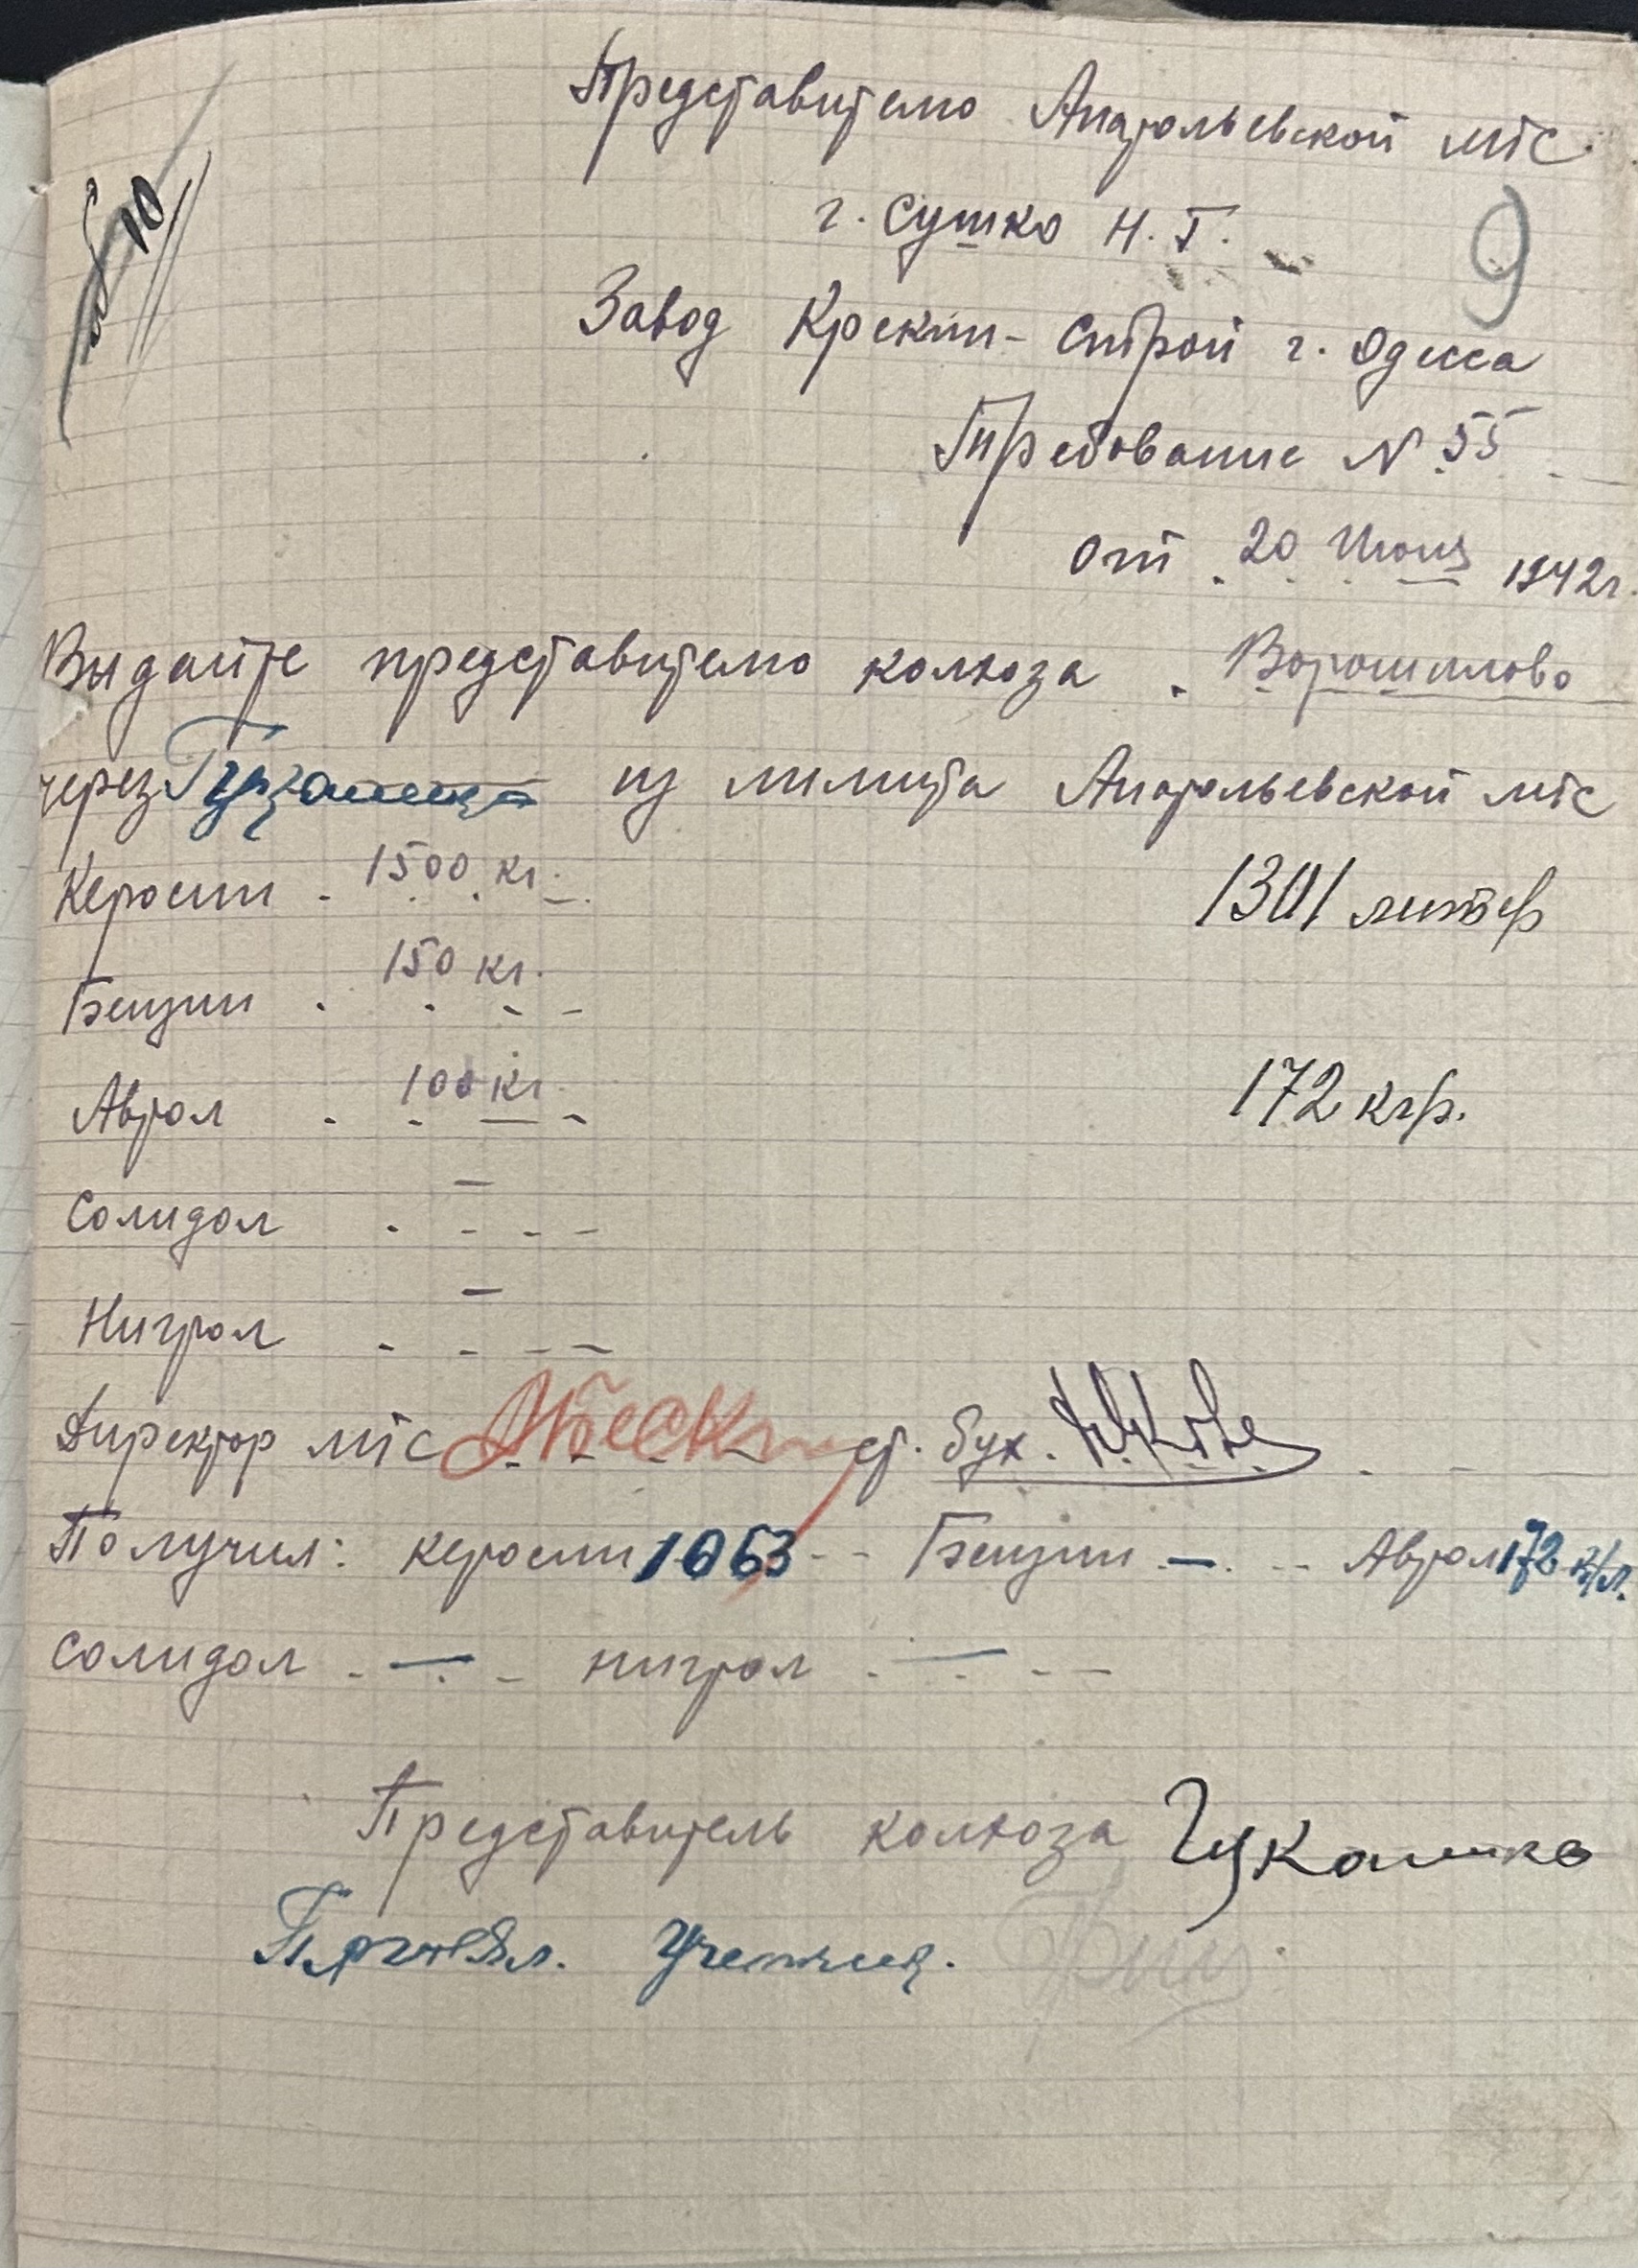 Представителю Анатольевской мтс.
г. Сушко Н. Г.
9
Завод Крекин-Строй г. Одесса
Требование N 55
от 20 Июня 1942г.
Выдайте представителю колхоза Ворошилово
через из лимита Анатольевской мтс
Керосин 1500 кг. 1301 литер
Бензин 150 кг.
Автол 100 кг. 172 кгр.
Солидол –
Нигрол –
Директор мтс ст. бух.
Получил: керосин 1063 Бензин — Автол 172
солидол — нигрол —
Представитель колхоза